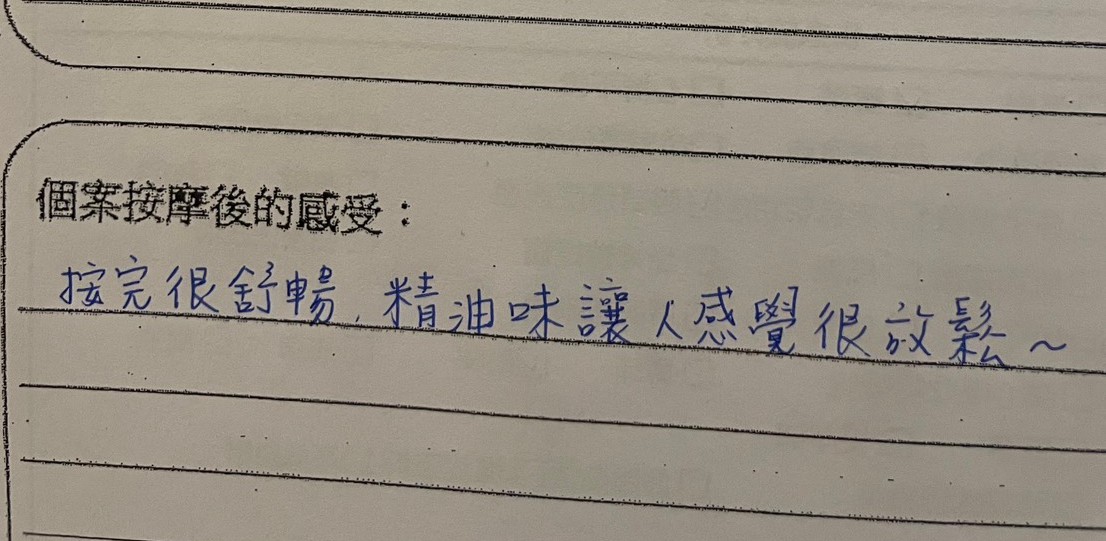 個案按摩後的感受：
按完很舒暢，精油味讓人感覺很放鬆～